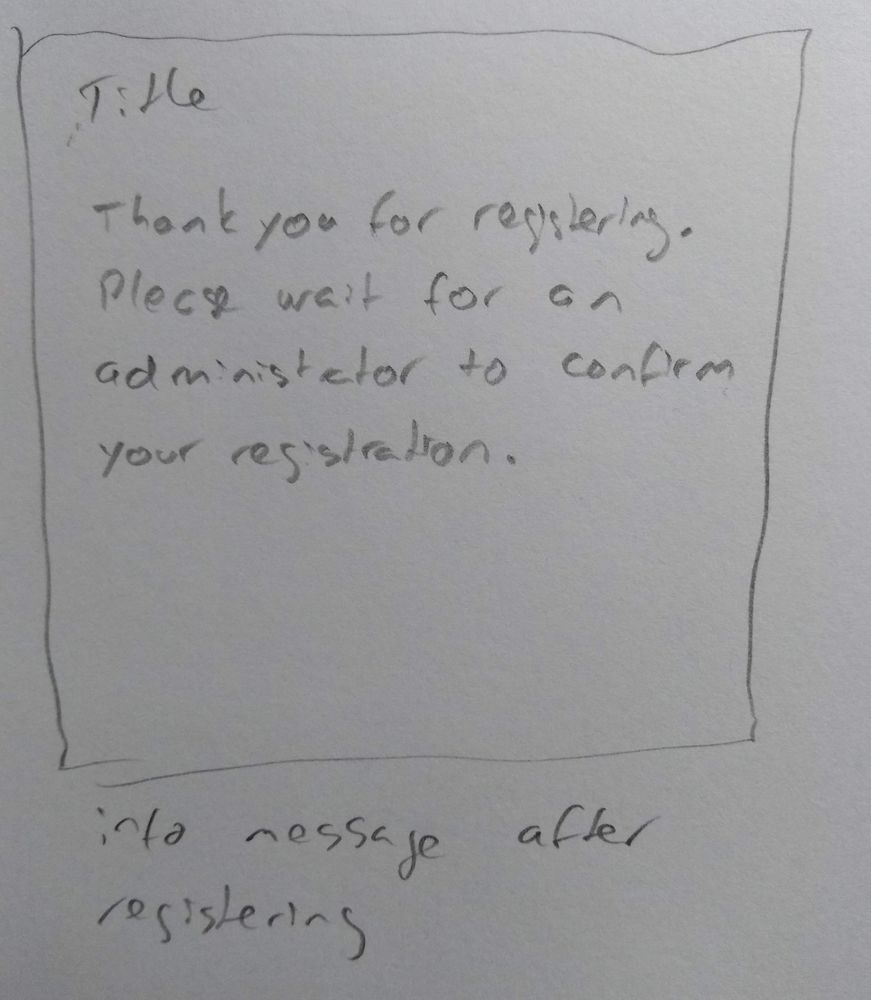 Title
Thank you for registering.
Please wait for an
administrator to confirm
your registration.
info message after
registering